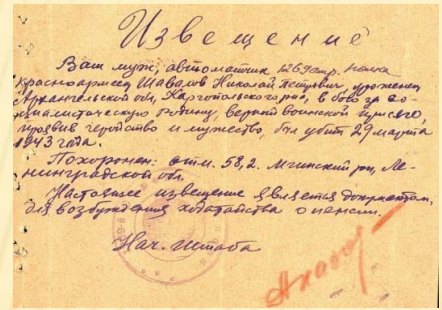 Извещение
Ваш муж, автоматчик 1269 стр. полка
Красноармеец Шавалов Николай Петрович, уроженец
Архангельской обл, Каргопольского р-на, в бою за со-
циалистическую Родину, верный воинской присяге,
проявив геройство и мужество, был убит 29 марта
1943 года.
Похоронен: отм. 58,2. Мгинский р-н, Ле-
нинградской обл.
Настоящее извещение является документом,
для возбуждения ходатайства о пенсии.
Нач. штаба